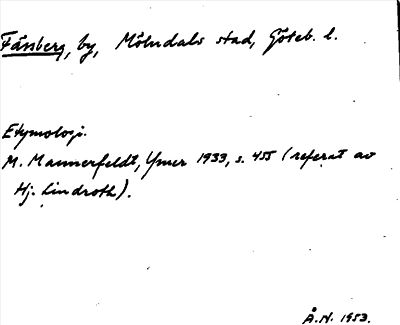 Fässberg, by, Mölndals stad, Göteb. l.
Etymologi.
M. Mannerfeldt, Ymer 1933, s. 455 (referat av
Hj. Lindroth).
Å.N. 1953.